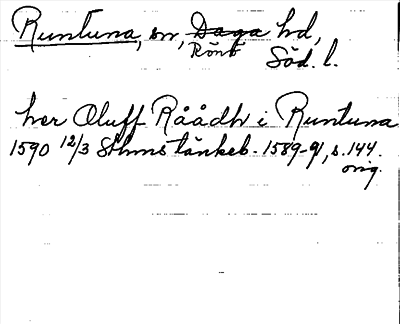 Runtuna, sn, Daga hd,
Rönö Söd. l.
her Oluff Råådh i Runtuna
1590 12/3 Sthms tänkeb. 1589-91, s. 144.
orig.